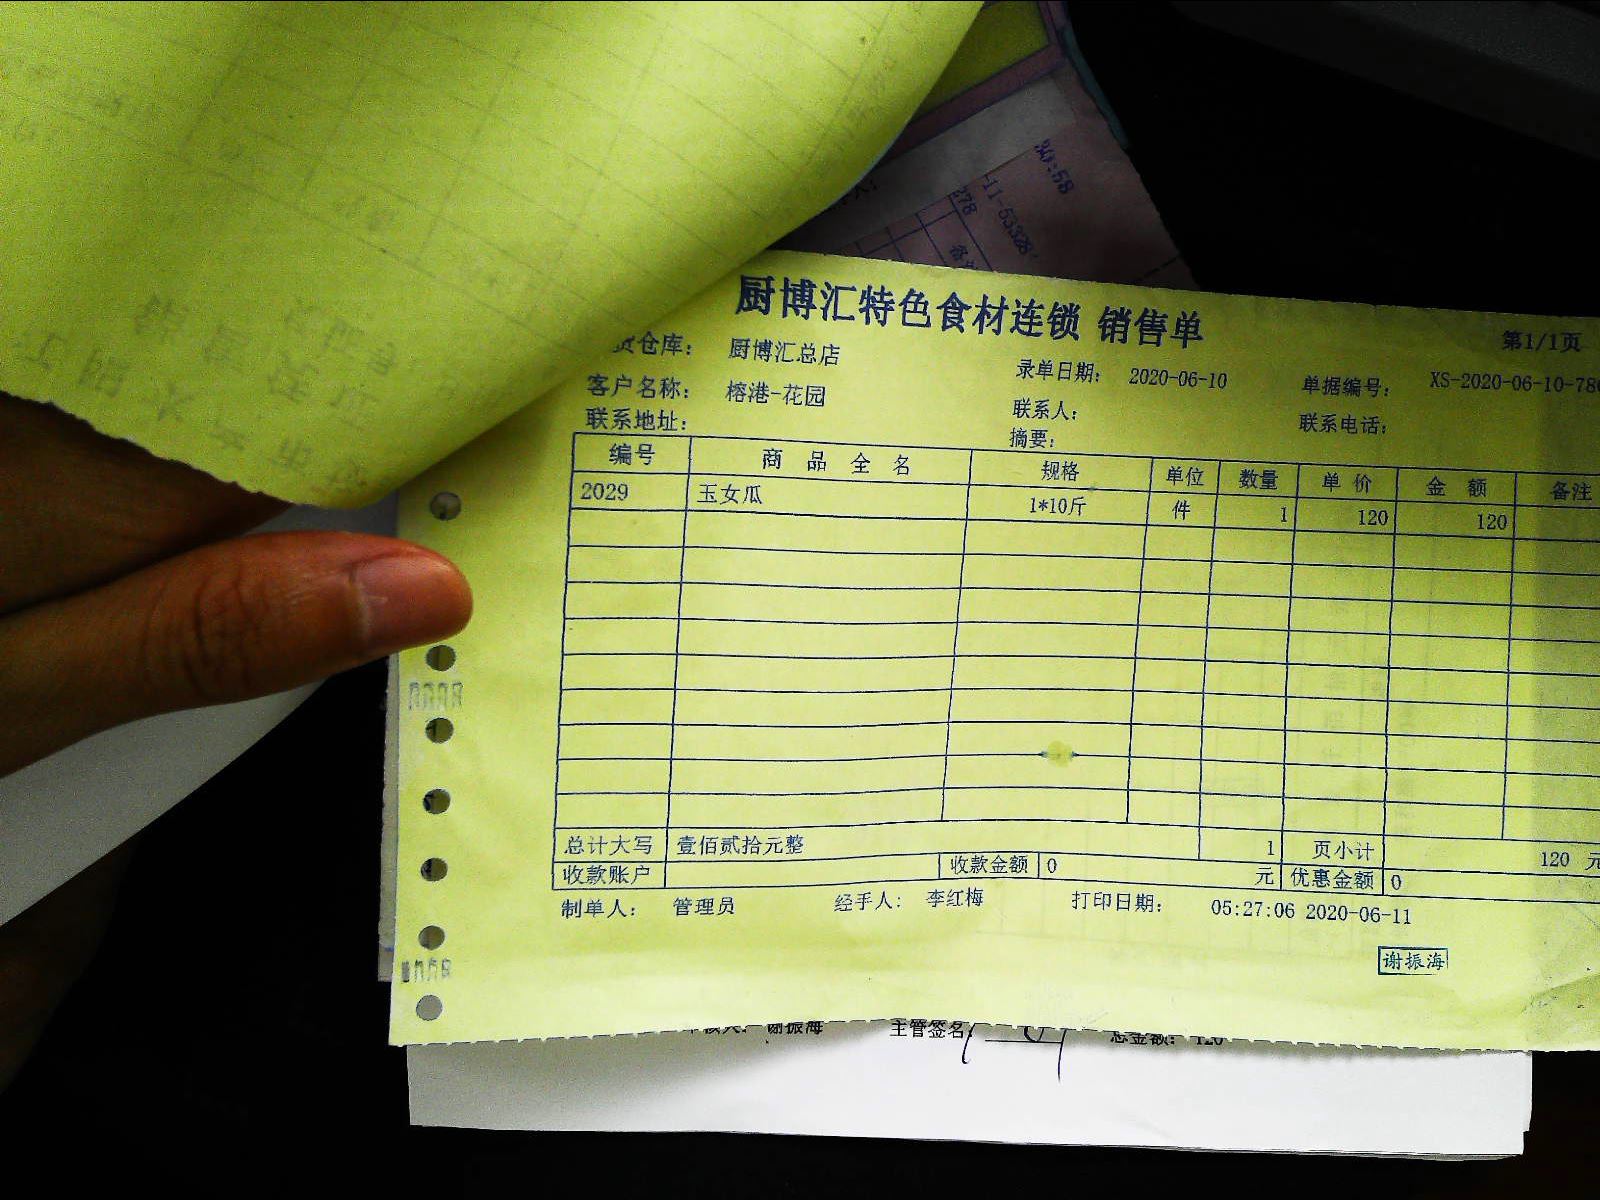 30:58
-11-53328
278
厨博汇特色食材连锁 销售单
第1/1页
货仓库： 厨博汇总店
录单日期： 2020-06-10
单据编号： XS-2020-06-10-786
客户名称： 榕港-花园
联系人：
联系电话：
联系地址：
摘要：
编号 商品全名 规格 单位 数量 单价 金额 备注
2029 玉女瓜 1*10斤 件 1 120 120
总计大写 壹佰贰拾元整 1 页小计 120 元
收款账户 收款金额 0 元 优惠金额 0
制单人： 管理员 经手人： 李红梅 打印日期： 05:27:06 2020-06-11
谢振海
审核人：谢振海 主管签名： 总金额：120